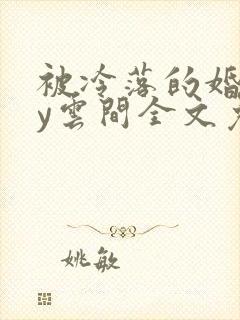 被冷落的婚
y雲間全文
姚敏